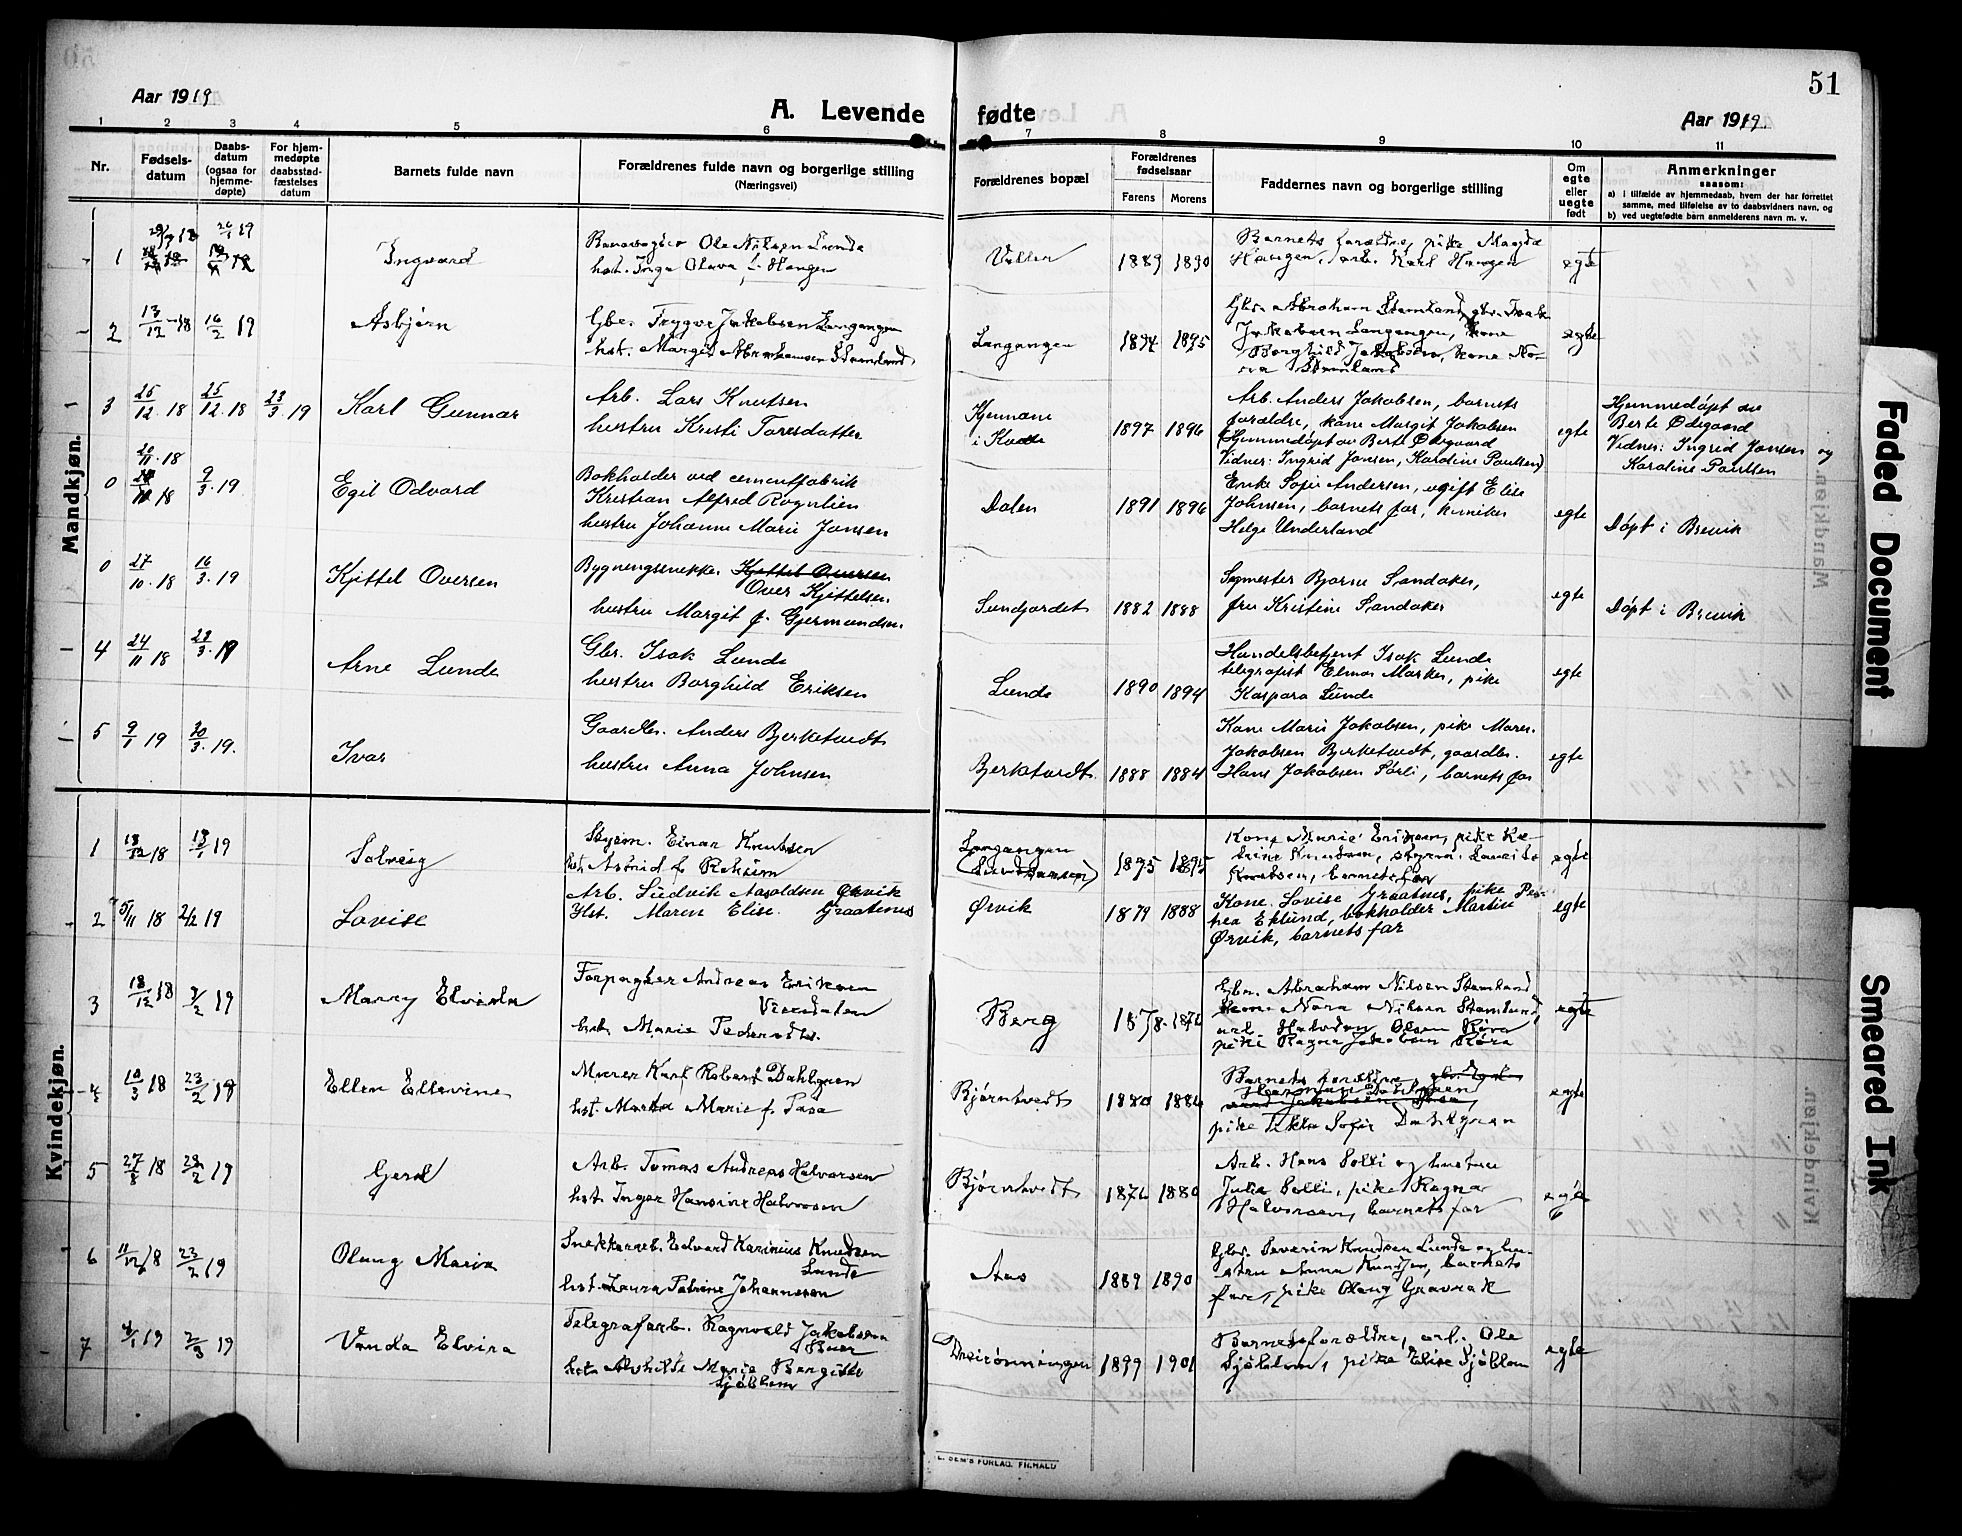 51
Aar 1919
A. Levende fødte
Aar 1919.
1 2 3 4 5 6 7 8 9 10 11
Nr.
Fødsels-
datum
Daabs-
datum
(ogsaa for
hjemme-
døpte)
For hjem-
medøpte
daabsstad-
fæstelses
datum
Barnets fulde navn
Forældrenes fulde navn og borgerlige stilling
(Næringsvei)
Forældrenes bopæl
Forældrenes
fødselsaar
Farens Morens
Faddernes navn og borgerlige stilling
Om
egte
eller
uegte
født
Anmerkninger
saasom:
a) i tilfælde av hjemmedaab, hvem der har forrettet
samme, med tilføielse av to daabsvidners navn, og
b) ved uegtefødte barn anmelderens navn m. v.
Mandkjøn.
1
Ingvard
Ole Nilsen Lunde
hst. Inga Olava f. Haugen
1889 1890
Barnets forældre, pike Magda
Haugen, arb. Karl Haugen
egte
2 13/12-18 16/2 19
Asbjørn
Gbr. Trygve Jakobsen Langangen
hst. Margit Abrahamsen Stamland
Langangen
1894 1895
Gbr. Abraham Stamland, gbr. Isak
Jakobsen Langangen, kone
Borghild Jakobsen, kone No-
ra Stamland
egte
3 25/12.18 23/3.19
Karl Gunnar
Arb. Lars Knutsen
hustru Kristi Taresdatter
1897 1896
Arb. Anders Jakobsen, barnets
forældre, kone Margit Jakobsen
(Hjemmedøpt av Berte Ødegaard
Vidner: Ingrid Jansen, Karoline Paulsen)
egte
Hjemmedøpt av
Berte Ødegaard
Vidner: Ingrid Jansen og
Karoline Paulsen
0 20/11.18 9/3.19
Egil Odvard
Bokholder ved cementfabrik
Kristian Alfred Rognlien
hustru Johanne Marie Jansen
Dalen
1891 1896
Enke Sofie Andersen, ugift Elise
Johnsen, barnets far, kemiker
Helge Underland
egte
Døpt i Brevik
0 27/10.18 16/3.19
Kjittel Oversen
Bygningssnekker Kjittel Oversen
Over Kjittelsen.
hustru Margit f. Gjermundsen.
Sundjordet
1882 1888
Bjarne Sandaker,
fru Kristine Sandaker
egte
Døpt i Brevik
4 24/11 18 23/3.19
Arne Lunde
Gbr. Isak Lunde
hustru Borghild Eriksen
Lunde
1890 1894
Handelsbetjent Isak Lunde
telegrafist Elmar Marker, pike
Kaspara Lunde
egte
5 9/1 19 30/3.19.
Ivar
Gaardbr. Anders Bjerketvedt
hustru Anna Johnsen
Bjerketvedt.
1888 1884
Kone Marie Jakobsen, pike Maren
Jakobsen Bjerketvedt, gaardbr.
Hans Jakobsen Sørli, barnets far
egte
Kvindekjøn.
1 18/12 18 19
Solveig
Styrm. Einar Knudsen
hst. Astrid f.
Langangen
1895 1895
Kone Marie Eriksen, pike Ka-
trine Knudsen, styrm. Laurits
Knudsen, barnets far
egte
2 5/11 18 2/2 19
Lovise
Arb. Ludvik Aasoldsen Ørvik
Hst. Maren Elise. Graatenes
Ørvik
1879 1888
Kone Lovise Graatnes, pike
Eklund, bokholder Martin
Ørvik, barnets far
egte
3 18/12 18 9/2 19
Marry Elvida
Forpagter Andreas Eriksen
hst. Marie Pedersdtr.
Berg
1878. 1876
Gbr. Abraham Nilsen Stamland
kone Nora Nilsen Stamland,
arb. Halvdan Olsen Røra
pike Ragna Jakobsen Røra
egte
4 10/3 18 23/2 19
Ellen Ellevine
Murer Karl Robert Dahlgren
hst. Marta Marie f. Tasa
Bjørntvedt
1880 1886
Barnets forældre,
pike Tekla Sofie Dahlgren
egte
5 27/8 18 23/2 19
Gerd
Arb. Tomas Andreas Halvorsen
hst. Inger Hansine Halvorsen
Bjørntvedt
1876 1880
Arb. Hans Solli og hustru
Julie Solli, pike Ragna
Halvorsen, barnets far
egte
6 11/12 18 23/2 19
Olaug Marie
Snekkerarb. Edvard Karinius Knudsen
Lunde
hst. Laura Petrine Johannesen
Aas
1889 1890
Gbr. Severin Knudsen Lunde og hu-
stru Anna Knudsen, barnets
far, pike Olaug Gravrak
7 4/1 19 2/3 19
Vanda Elvira
Telegrafarb. Ragnvald Jakobsen
Buer
hst. Alvhilde Marie Bergitte
Sjöblom
1899 1901
Barnets forældre, arb. Ole
Sjöblom, pike Elise Sjöblom
egte
E. SEM'S FORLAG. FR.HALD
Faded Document
Smeared Ink